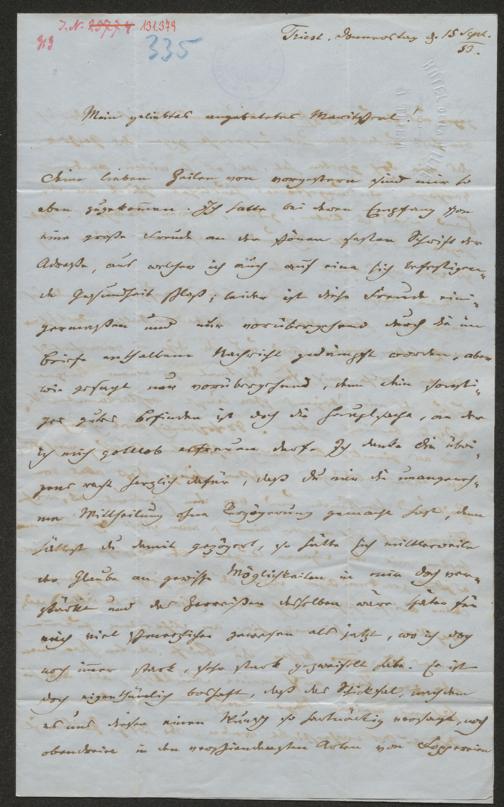 J. N. 131.379
335
Triest. Donnerstag d. 15 Sept.
53.
HOTEL DE LA VILLE
Mein geliebtes angebetetes Marie!
Deine lieben Zeilen von vorgestern sind mir so
eben zugekommen. Ich hatte bei deren Empfang schon
eine große Freude an der schönen festen Schrift der
Adresse, aus welcher ich auch auf eine sich befestigen-
de Gesundheit schloß; leider ist diese Freude eini-
germaßen und nur vorübergehend durch die im
Briefe enthaltene Nachricht gedämpft worden, aber
wie gesagt nur vorübergehend, denn Dein sonsti-
ges gutes Befinden ist doch die Hauptsache, an der
ich mich gottlob erfreuen darf. Ich danke Dir übri-
gens recht herzlich dafür, daß du mir die unangeneh-
me Mittheilung ohne Verzögerung gemacht hast, denn
hättest du damit gezögert, so hätte sich mittlerweile
der Glaube an gewisse Möglichkeiten in mir doch ver-
stärkt und das Zerreißen desselben wäre später für
mich viel schmerzlicher gewesen als jetzt, wo ich doch
noch immer stark, sehr stark gezweifelt habe. Es ist
doch eigenthümlich boshaft, daß das Schicksal, nachdem
es uns diesen einen Wunsch so hartnäckig versagt, noch
obendrein in den verschiedensten Arten von